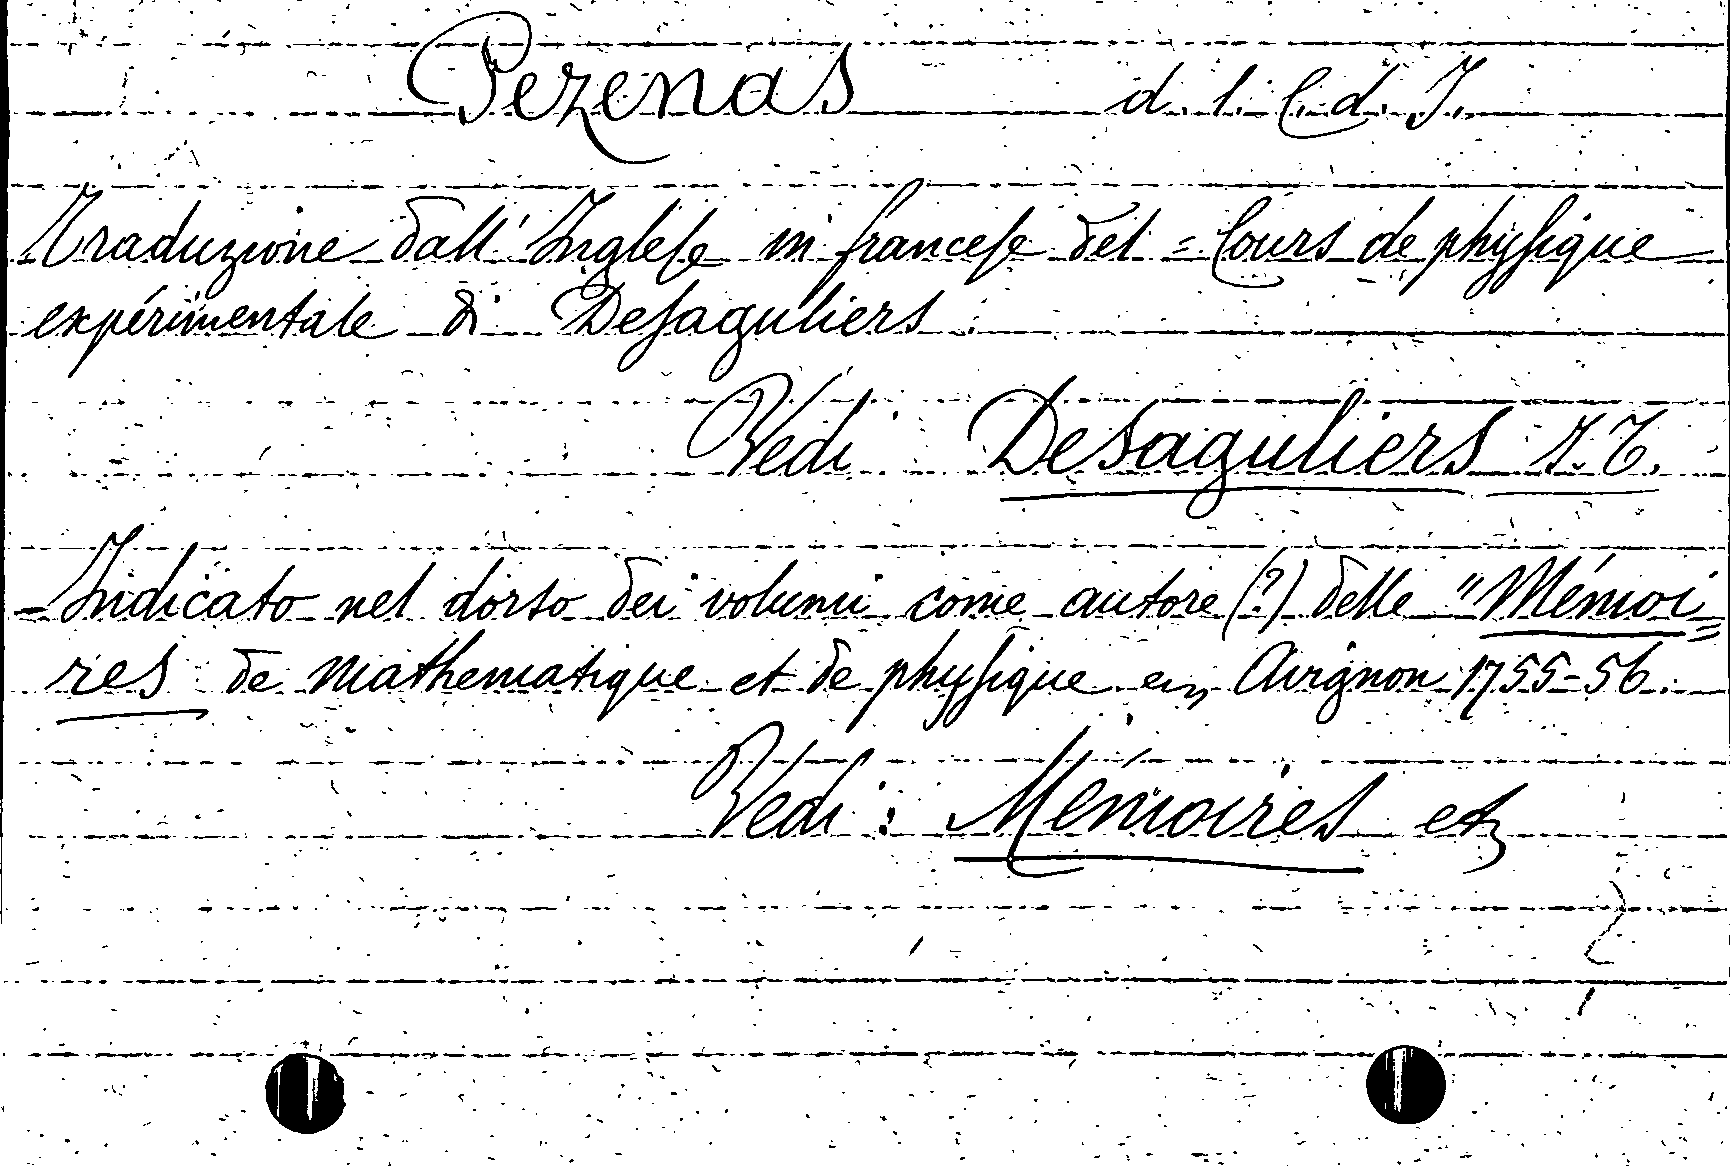 Pezenas d. l. C. d. J.
Traduzione dall' Inglese in francese del = Cours de physique
expérimentale di Desaguliers.
Vedi Desaguliers J. T.
-Indicato nel dorso dei volumi come autore (?) delle "Mémoi=
res de mathematique et de physique en Avignon 1755-56.
Vedi: Mémoires etz